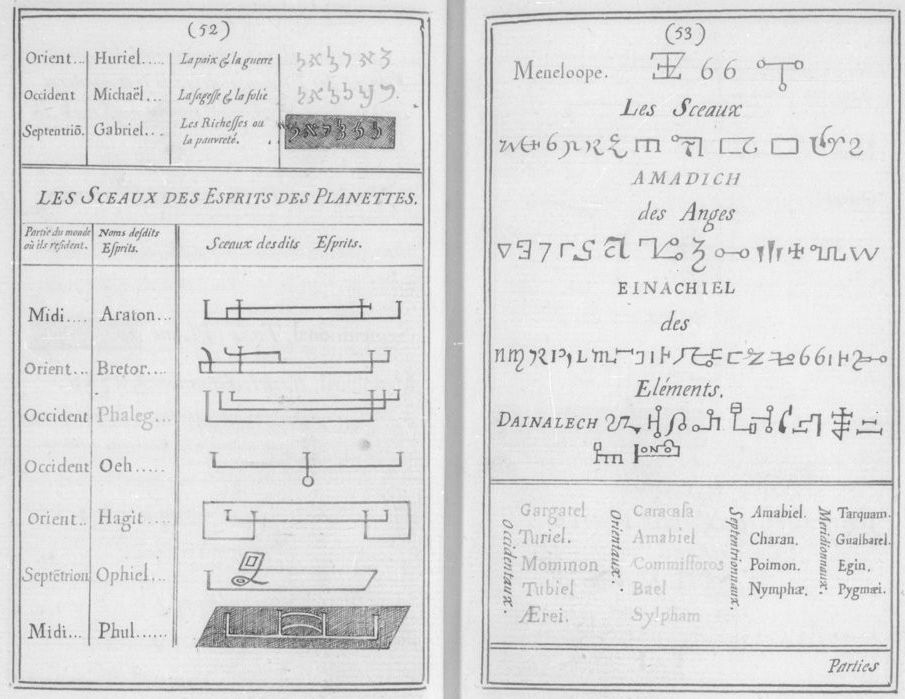 (52)
Orient... Huriel..... La paix & la guerre
Occident Michaël... La sagesse & la folie
Septentriõ. Gabriel... Les Richesses ou
la pauvreté.
LES SCEAUX DES ESPRITS DES PLANETTES.
Partie du monde Noms desdits Sceaux desdits Esprits.
où ils resident. Esprits.
Midi.... Araton...
Orient... Bretor....
Occident Phaleg...
Occident Oeh.....
Orient.. Hagit....
Septẽtrion Ophiel...
Midi... Phul......
(53)
Meneloope.
Les Sceaux
AMADICH
des Anges
EINACHIEL
des
Eléments.
DAINALECH
Occidentaux.
Gargatel
Turiel.
Mommon
Tubiel
Ærei.
Orientaux.
Caracasa
Amabiel
Commissoros
Bael
Sylpham
Septentrionnaux.
Amabiel.
Charan.
Poimon.
Nymphæ.
Meridionnaux.
Tarquam.
Gualbarel.
Egin.
Pygmæi.
Parties